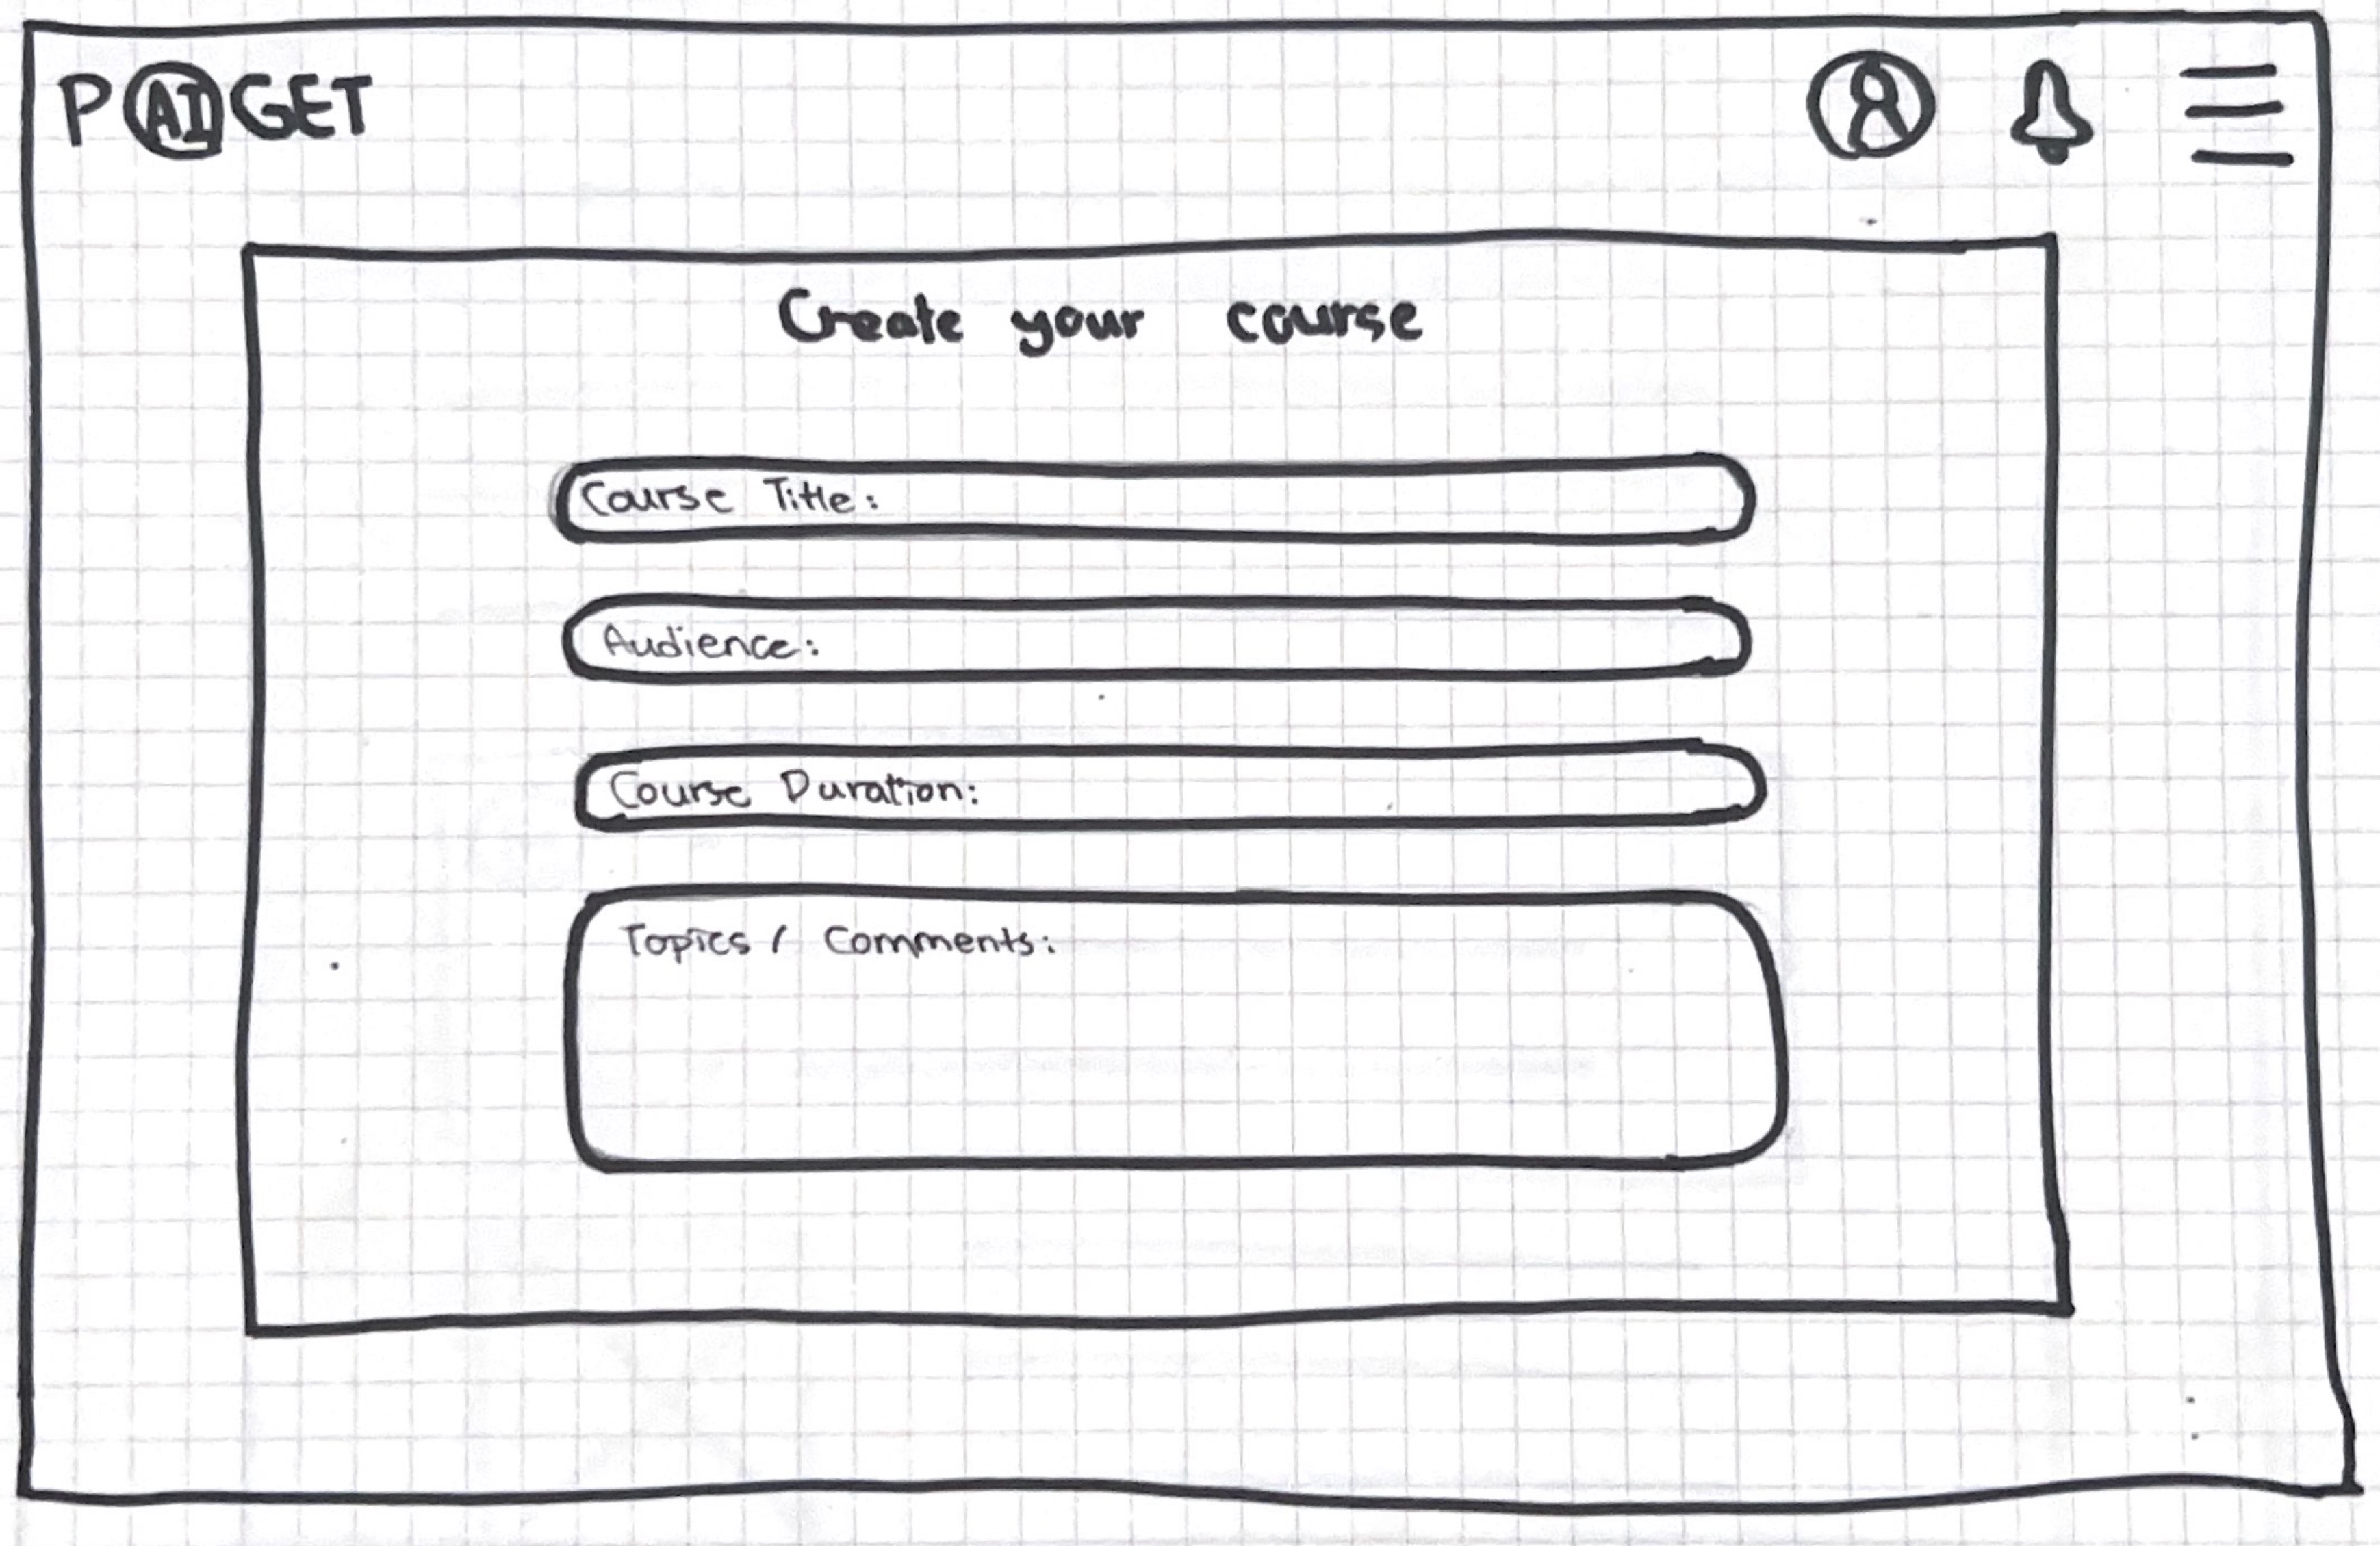 PAIGET
Create your course
Course Title:
Audience:
Course Duration:
Topics / Comments: